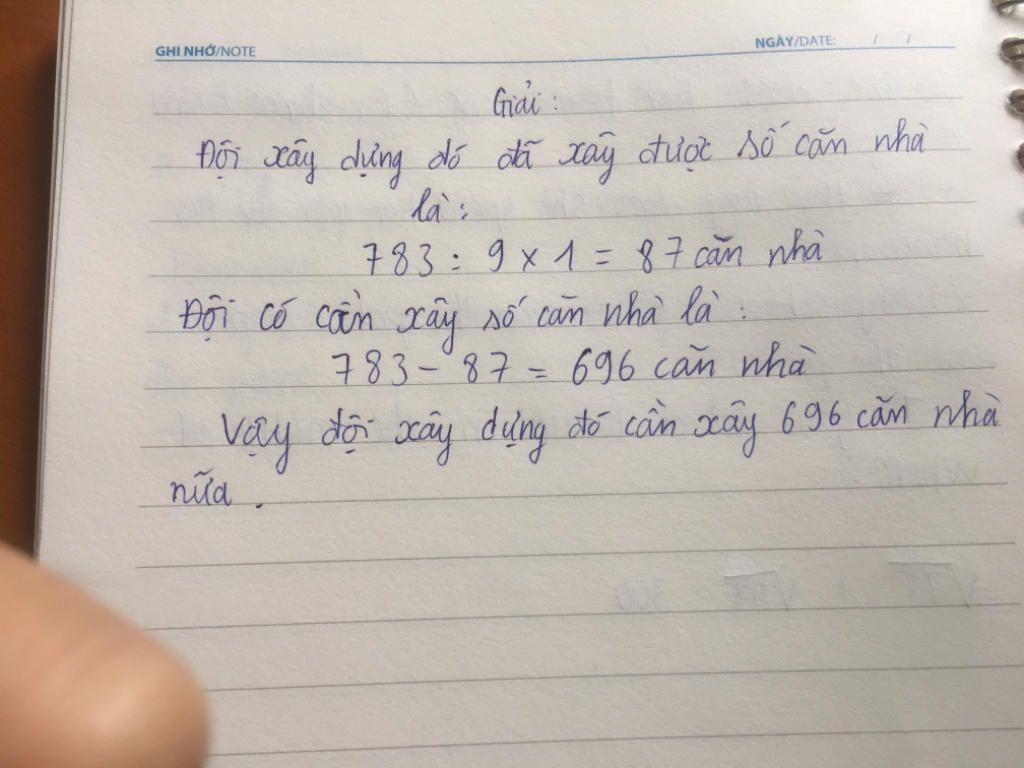 GHI NHỚ/NOTE
NGÀY/DATE: / /
Giải:
Đội xây dựng đó đã xây được số căn nhà
là:
783 : 9 x 1 = 87 căn nhà
Đội có cần xây số căn nhà là:
783 - 87 = 696 căn nhà
Vậy đội xây dựng đó cần xây 696 căn nhà
nữa.